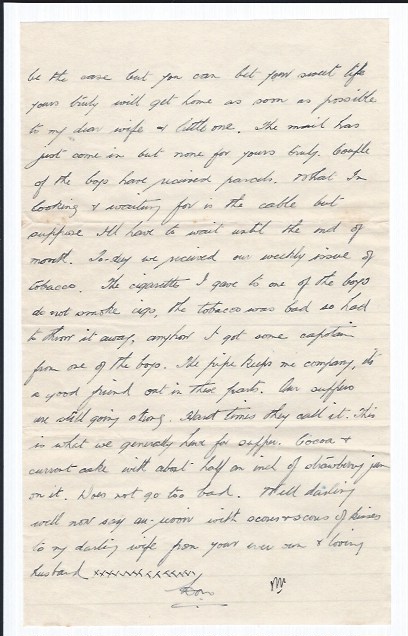 be the case but you can bet your sweet life
yours truly will get home as soon as possible
to my dear wife & little one. The mail has
just come in but none for yours truly. Couple
of the boys have received parcels. What I'm
looking & waiting for is the cable but
suppose I'll have to wait until the end of
month. To-day we received our weekly issue of
tobacco. The cigarettes I gave to one of the boys
do not smoke cigs, the tobacco was bad so had
to throw it away, anyhow I got some captain
from one of the boys. The pipe keeps me company, it's
a good friend out in these parts. Our suppers
are still going strong. Hard times they call it. This
is what we generally have for supper. Cocoa &
currant cake with about half an inch of strawberry jam
on it. Does not go too bad. Well darling
will now say au-revoir with scores & scores of kisses
to my darling wife from your ever own & loving
husband xxxxxxxxxxxxx